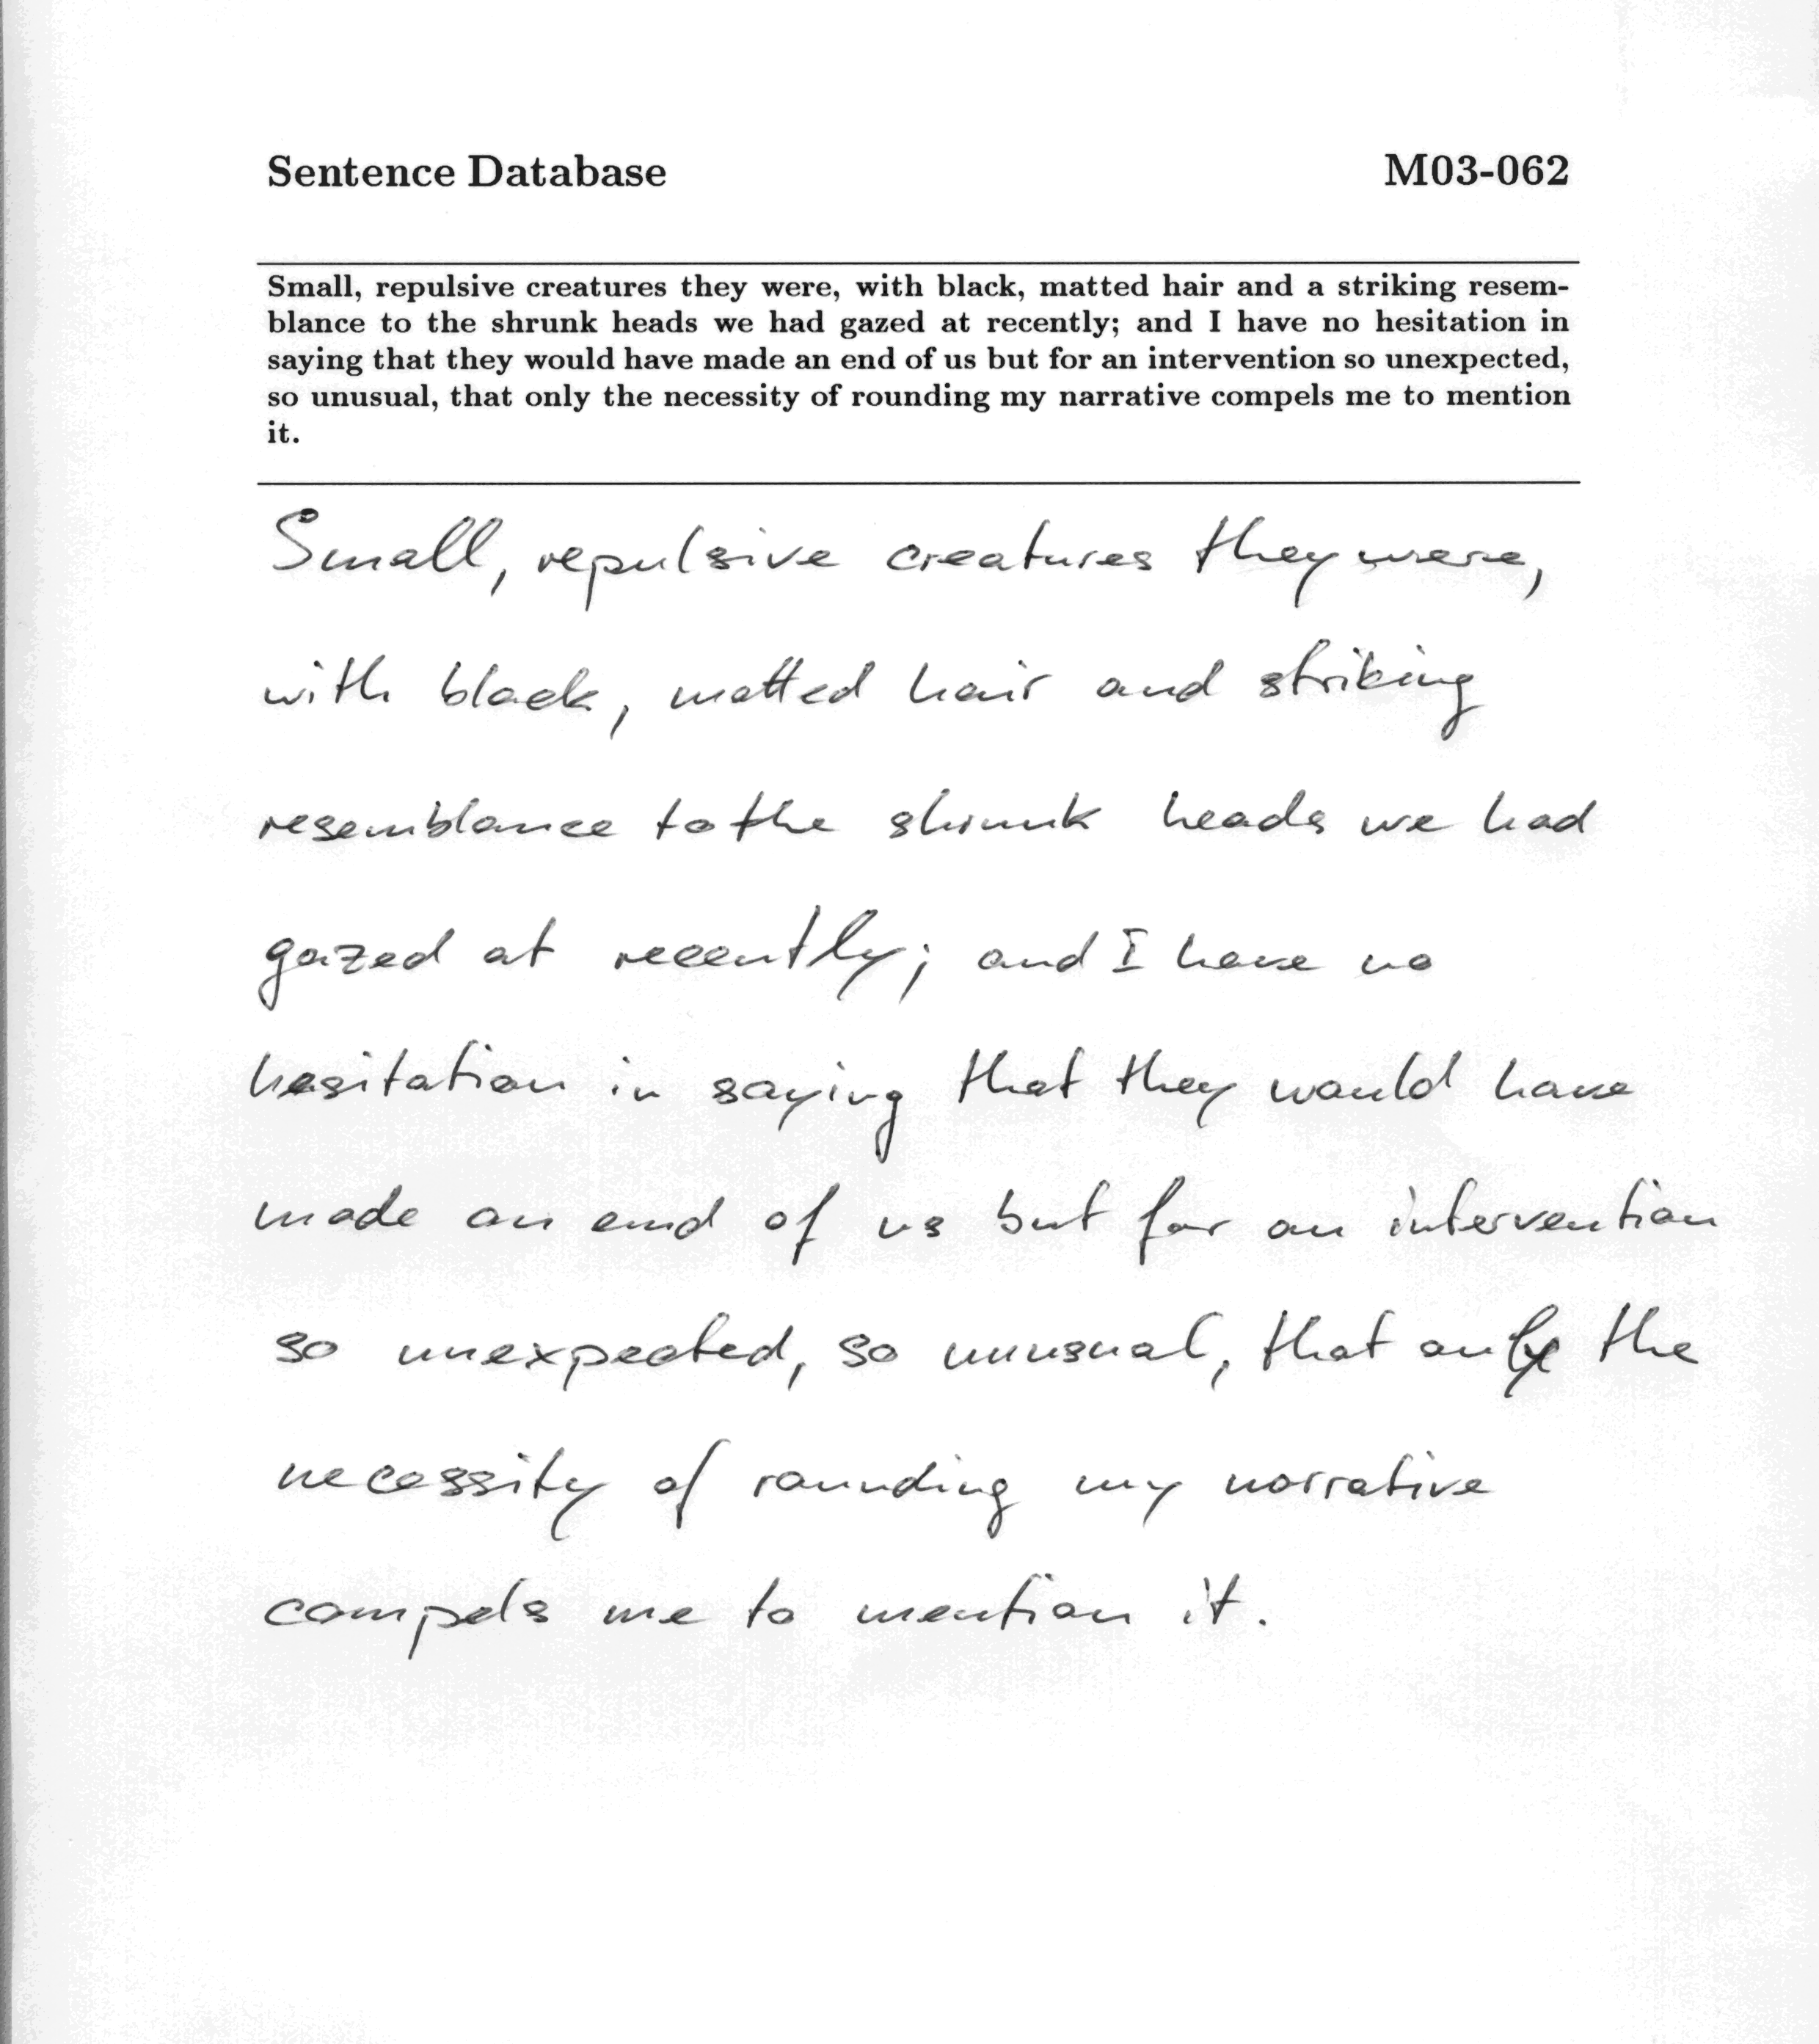 Sentence Database M03-062
Small, repulsive creatures they were, with black, matted hair and a striking resem-
blance to the shrunk heads we had gazed at recently; and I have no hesitation in
saying that they would have made an end of us but for an intervention so unexpected,
so unusual, that only the necessity of rounding my narrative compels me to mention
it.
Small, repulsive creatures they were,
with black, matted hair and striking
resemblance to the shrunk heads we had
gazed at recently; and I have no
hesitation in saying that they would have
made an end of us but for an intervention
so unexpected, so unusual, that only the
necessity of rounding my narrative
compels me to mention it.